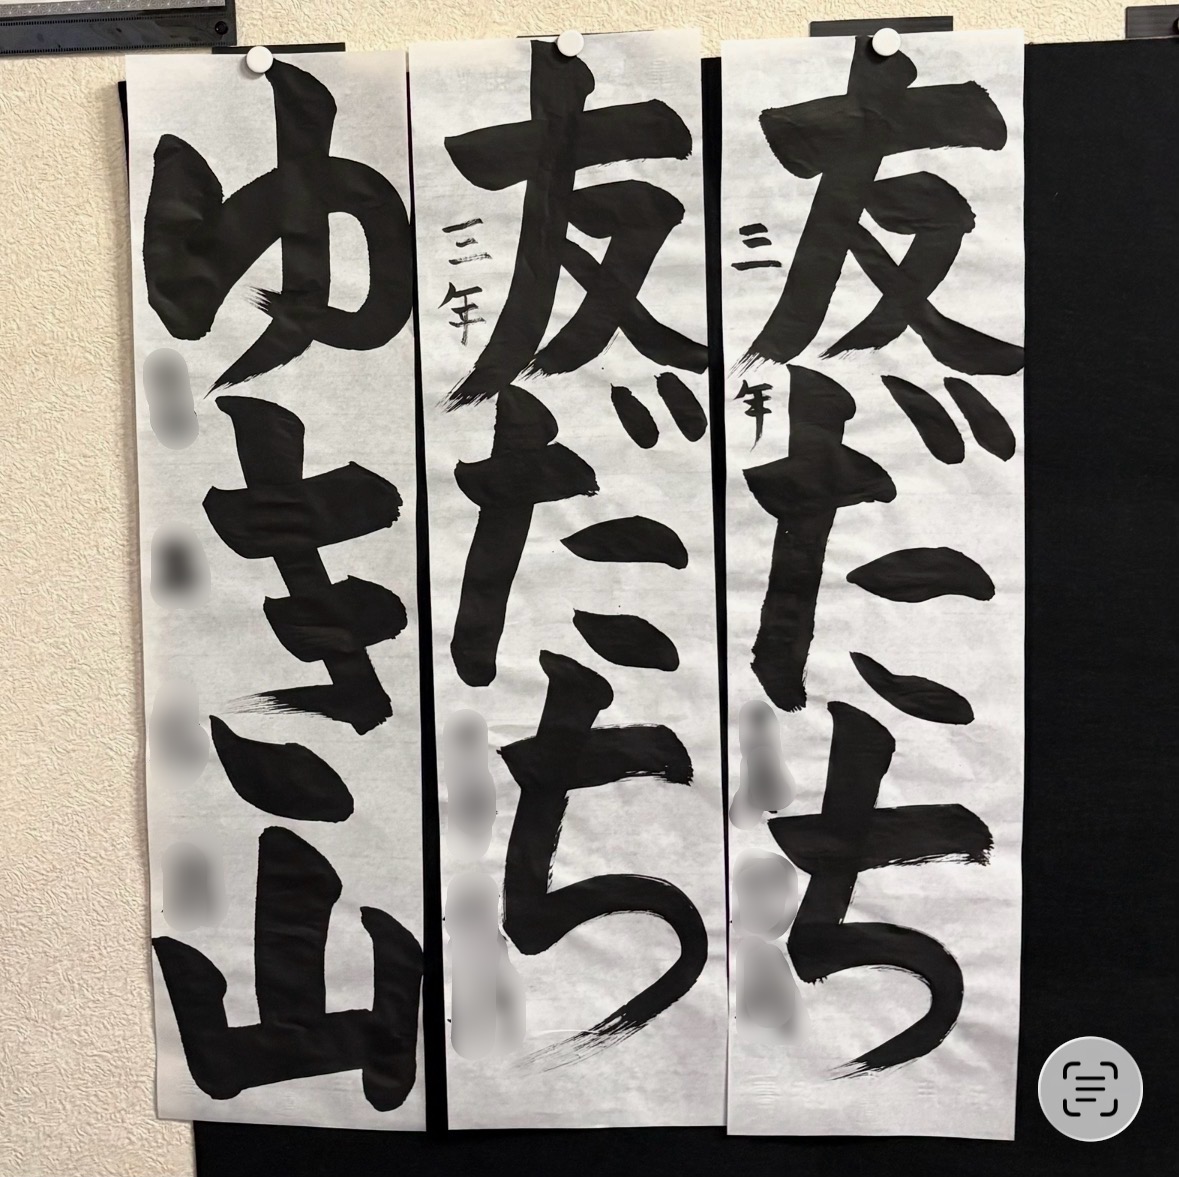 友だち
三年
友だち
三年
ゆき山